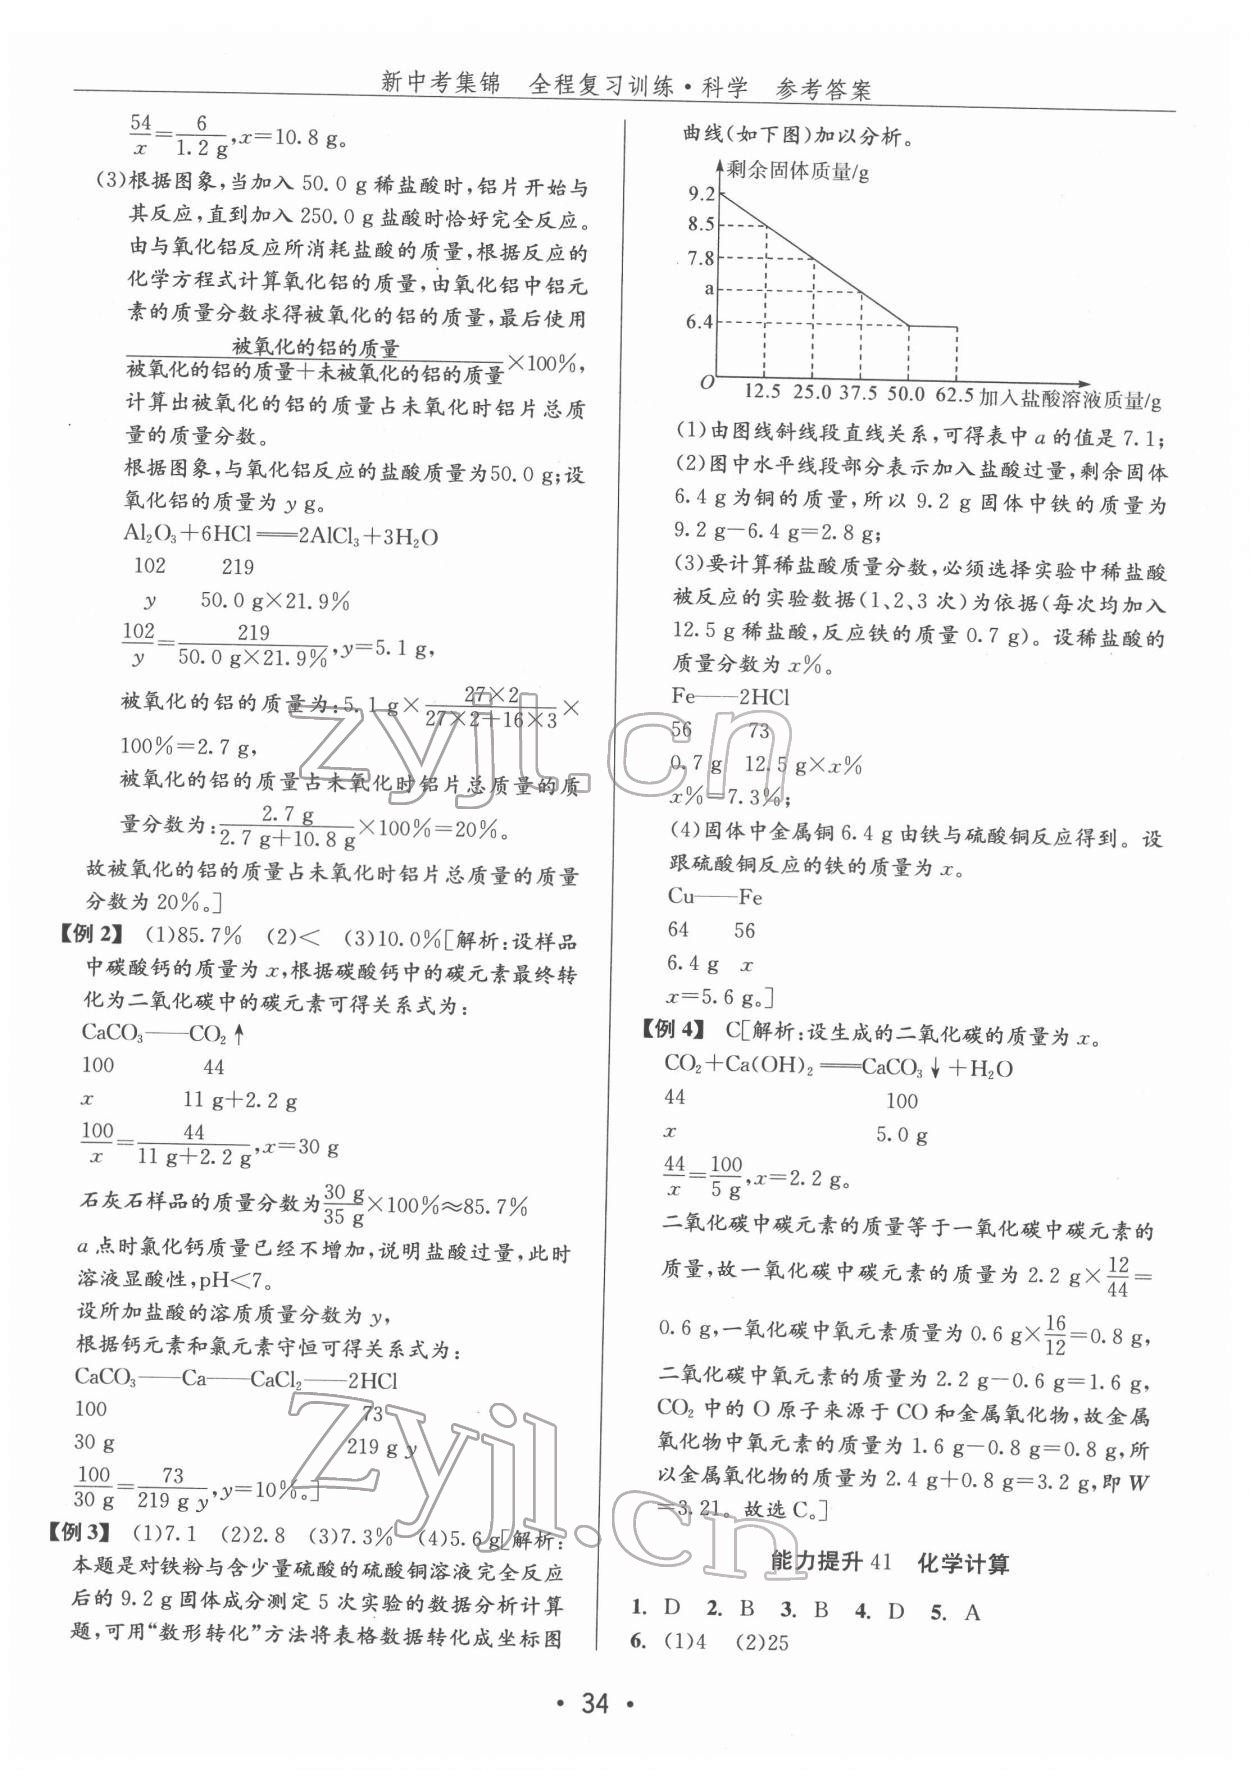 新中考集锦　全程复习训练·科学　参考答案
54/x=6/1.2 g,x=10.8 g。
(3)根据图象,当加入 50.0 g 稀盐酸时,铝片开始与
其反应,直到加入 250.0 g 盐酸时恰好完全反应。
由与氧化铝反应所消耗盐酸的质量,根据反应的
化学方程式计算氧化铝的质量,由氧化铝中铝元
素的质量分数求得被氧化的铝的质量,最后使用
被氧化的铝的质量/被氧化的铝的质量+未被氧化的铝的质量×100%,
计算出被氧化的铝的质量占未氧化时铝片总质
量的质量分数。
根据图象,与氧化铝反应的盐酸质量为50.0 g;设
氧化铝的质量为 y g。
Al₂O₃+6HCl══2AlCl₃+3H₂O
102　219
y　50.0 g×21.9%
102/y=219/50.0 g×21.9%,y=5.1 g,
被氧化的铝的质量为:5.1 g×27×2/27×2+16×3×
100%=2.7 g,
被氧化的铝的质量占未氧化时铝片总质量的质
量分数为:2.7 g/2.7 g+10.8 g×100%=20%。
故被氧化的铝的质量占未氧化时铝片总质量的质量
分数为 20%。]
【例 2】 (1)85.7%　(2)<　(3)10.0%[解析:设样品
中碳酸钙的质量为 x,根据碳酸钙中的碳元素最终转
化为二氧化碳中的碳元素可得关系式为:
CaCO₃——CO₂↑
100　44
x　11 g+2.2 g
100/x=44/11 g+2.2 g,x=30 g
石灰石样品的质量分数为30 g/35 g×100%≈85.7%
a 点时氯化钙质量已经不增加,说明盐酸过量,此时
溶液显酸性,pH<7。
设所加盐酸的溶质质量分数为 y,
根据钙元素和氯元素守恒可得关系式为:
CaCO₃——Ca——CaCl₂——2HCl
100　73
30 g　219 g y
100/30 g=73/219 g y,y=10%。]
【例 3】 (1)7.1　(2)2.8　(3)7.3%　(4)5.6 g[解析:
本题是对铁粉与含少量硫酸的硫酸铜溶液完全反应
后的 9.2 g 固体成分测定 5 次实验的数据分析计算
题,可用“数形转化”方法将表格数据转化成坐标图
曲线(如下图)加以分析。
剩余固体质量/g
9.2
8.5
7.8
a
6.4
O
12.5　25.0　37.5　50.0　62.5 加入盐酸溶液质量/g
(1)由图线斜线段直线关系,可得表中 a 的值是 7.1;
(2)图中水平线段部分表示加入盐酸过量,剩余固体
6.4 g 为铜的质量,所以 9.2 g 固体中铁的质量为
9.2 g-6.4 g=2.8 g;
(3)要计算稀盐酸质量分数,必须选择实验中稀盐酸
被反应的实验数据(1、2、3 次)为依据(每次均加入
12.5 g 稀盐酸,反应铁的质量 0.7 g)。设稀盐酸的
质量分数为 x%。
Fe——2HCl
56　73
0.7 g　12.5 g×x%
x%=7.3%;
(4)固体中金属铜 6.4 g 由铁与硫酸铜反应得到。设
跟硫酸铜反应的铁的质量为 x。
Cu——Fe
64　56
6.4 g　x
x=5.6 g。]
【例 4】 C[解析:设生成的二氧化碳的质量为 x。
CO₂+Ca(OH)₂══CaCO₃↓+H₂O
44　100
x　5.0 g
44/x=100/5 g,x=2.2 g。
二氧化碳中碳元素的质量等于一氧化碳中碳元素的
质量,故一氧化碳中碳元素的质量为 2.2 g×12/44=
0.6 g,一氧化碳中氧元素质量为 0.6 g×16/12=0.8 g,
二氧化碳中氧元素的质量为 2.2 g-0.6 g=1.6 g,
CO₂ 中的 O 原子来源于 CO 和金属氧化物,故金属
氧化物中氧元素的质量为 1.6 g-0.8 g=0.8 g,所
以金属氧化物的质量为 2.4 g+0.8 g=3.2 g,即 W
=3.21。故选 C。]
能力提升 41　化学计算
1. D　2. B　3. B　4. D　5. A
6. (1)4　(2)25
· 34 ·
zyjl.cn
zyjl.cn